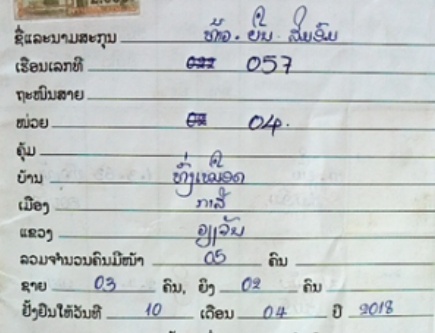 ຊື່ແລະນາມສະກຸນ ທ້າວ. ຍິນ. ສົມອົບ
ເຮືອນເລກທີ 057
ຖະໜົນສາຍ
ໜ່ວຍ 04.
ຄຸ້ມ
ບ້ານ
ເມືອງ ກາສີ
ແຂວງ ວຽງຈັນ
ລວມຈຳນວນຄົນມີໜ້າ 05 ຄົນ
ຊາຍ 03 ຄົນ, ຍິງ 02 ຄົນ
ຢັ້ງຢືນໃຫ້ວັນທີ 10 ເດືອນ 04 ປີ 2018